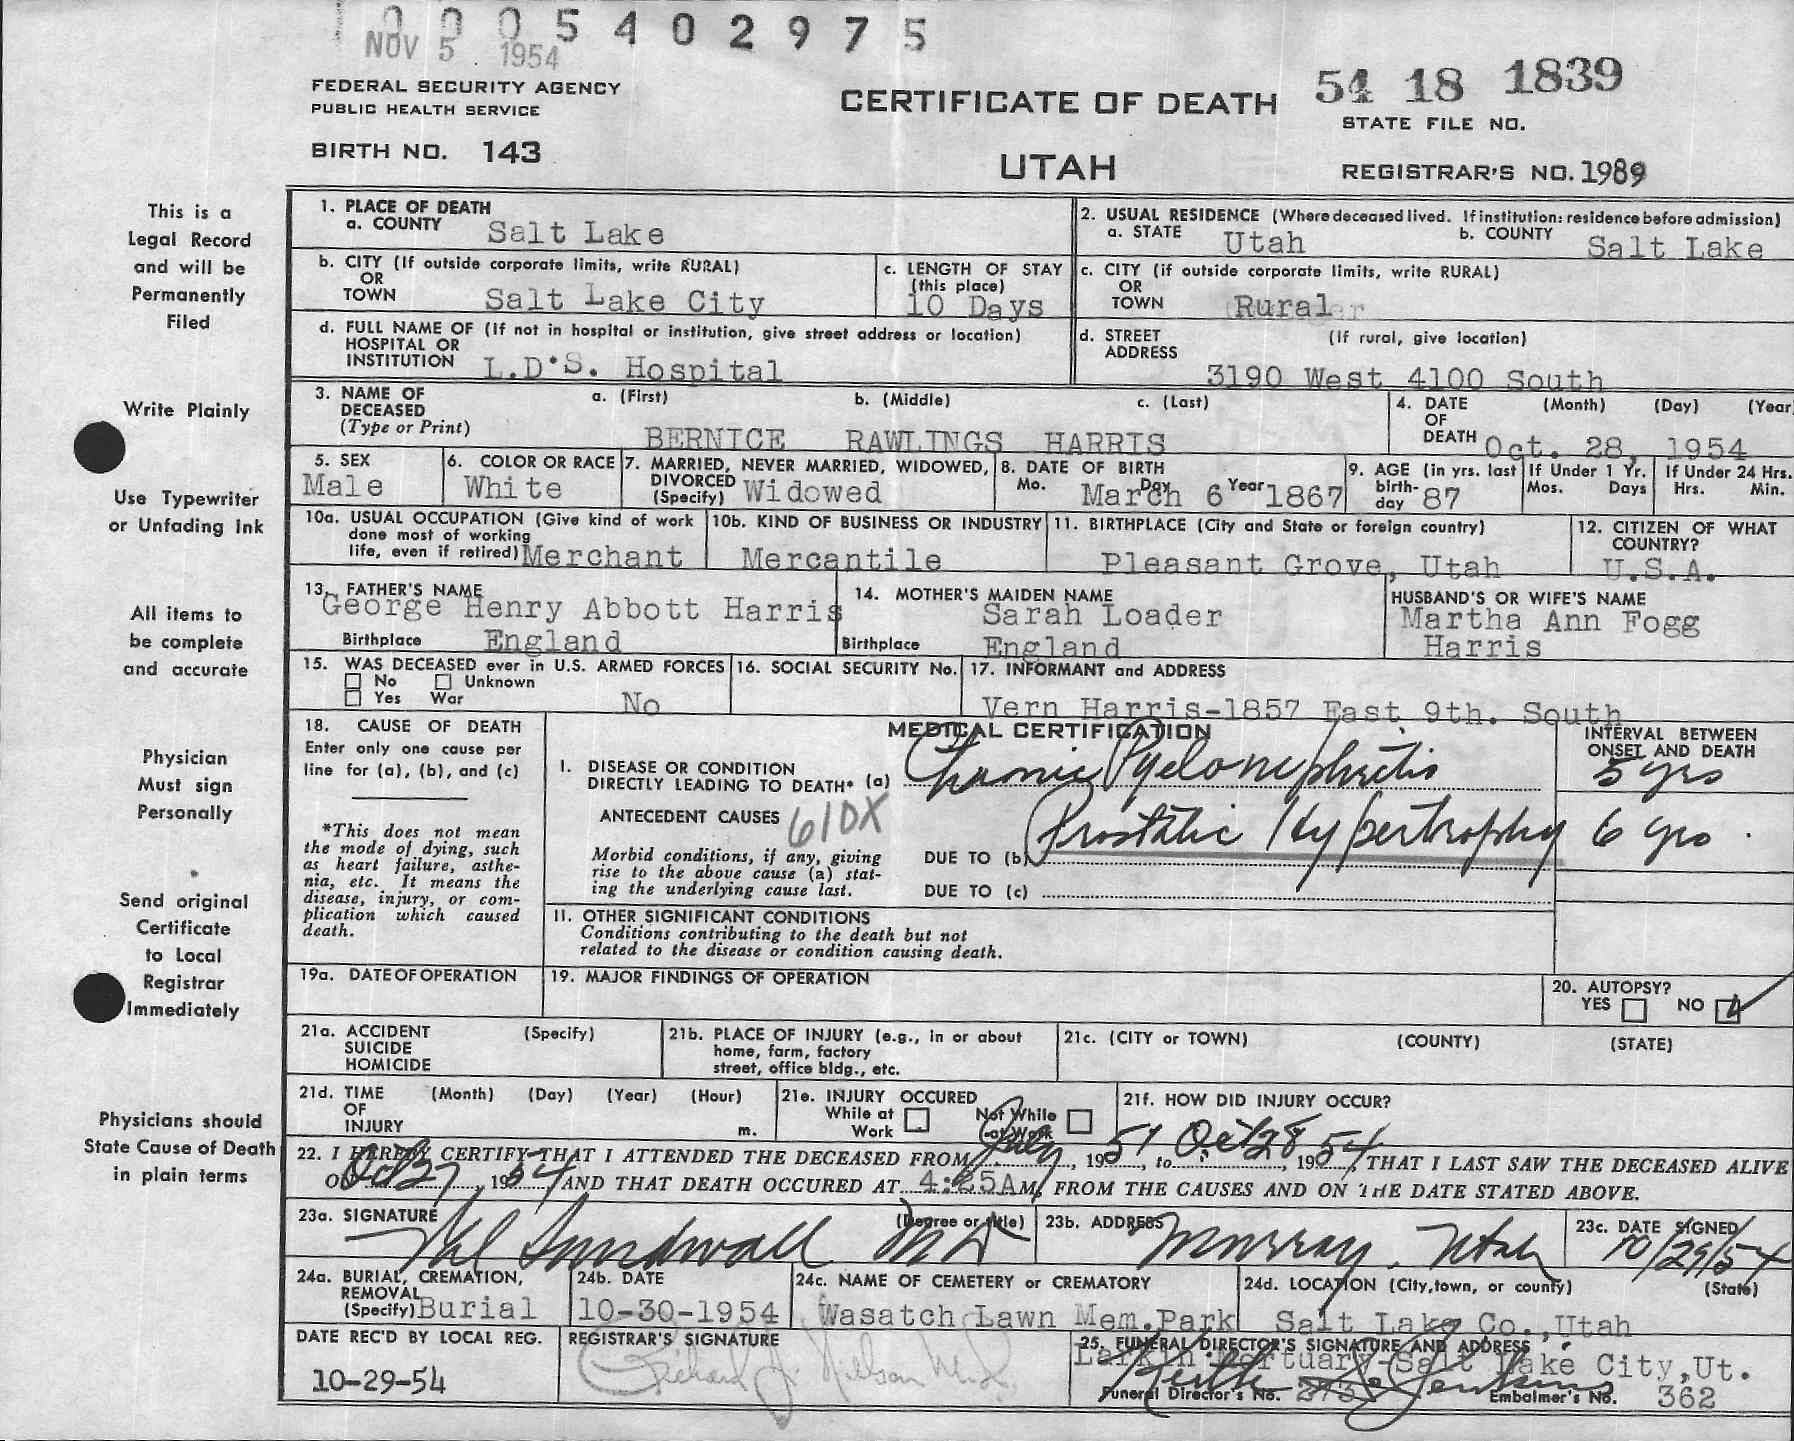 0 0 0 5 4 0 2 9 7 5
NOV 5 1954
FEDERAL SECURITY AGENCY
PUBLIC HEALTH SERVICE
BIRTH NO. 143
CERTIFICATE OF DEATH
UTAH
54 18 1839
STATE FILE NO.
REGISTRAR'S NO. 1989
This is a
Legal Record
and will be
Permanently
Filed
Write Plainly
Use Typewriter
or Unfading Ink
All items to
be complete
and accurate
Physician
Must sign
Personally
Send original
Certificate
to Local
Registrar
Immediately
Physicians should
State Cause of Death
in plain terms
1. PLACE OF DEATH
a. COUNTY Salt Lake
2. USUAL RESIDENCE (Where deceased lived. If institution: residence before admission)
a. STATE Utah b. COUNTY Salt Lake
b. CITY (If outside corporate limits, write RURAL)
OR
TOWN Salt Lake City
c. LENGTH OF STAY
(this place)
10 Days
c. CITY (if outside corporate limits, write RURAL)
OR
TOWN Rural
d. FULL NAME OF (If not in hospital or institution, give street address or location)
HOSPITAL OR
INSTITUTION L.D.S. Hospital
d. STREET (If rural, give location)
ADDRESS
3190 West 4100 South
3. NAME OF a. (First) b. (Middle) c. (Last)
DECEASED
(Type or Print)
BERNICE RAWLINGS HARRIS
4. DATE (Month) (Day) (Year
OF
DEATH Oct. 28, 1954
5. SEX
Male
6. COLOR OR RACE
White
7. MARRIED, NEVER MARRIED, WIDOWED,
DIVORCED
(Specify) Widowed
8. DATE OF BIRTH
Mo. Day Year
March 6 1867
9. AGE (in yrs. last
birth-
day 87
If Under 1 Yr.
Mos. Days
If Under 24 Hrs.
Hrs. Min.
10a. USUAL OCCUPATION (Give kind of work
done most of working
life, even if retired) Merchant
10b. KIND OF BUSINESS OR INDUSTRY
Mercantile
11. BIRTHPLACE (City and State or foreign country)
Pleasant Grove, Utah
12. CITIZEN OF WHAT
COUNTRY?
U.S.A.
13. FATHER'S NAME
George Henry Abbott Harris
Birthplace England
14. MOTHER'S MAIDEN NAME
Sarah Loader
Birthplace England
HUSBAND'S OR WIFE'S NAME
Martha Ann Fogg
Harris
15. WAS DECEASED ever in U.S. ARMED FORCES
No Unknown
Yes War
No
16. SOCIAL SECURITY No.
17. INFORMANT and ADDRESS
Vern Harris-1857 East 9th. South
18. CAUSE OF DEATH
Enter only one cause per
line for (a), (b), and (c)
*This does not mean
the mode of dying, such
as heart failure, asthe-
nia, etc. It means the
disease, injury, or com-
plication which caused
death.
MEDICAL CERTIFICATION
INTERVAL BETWEEN
ONSET AND DEATH
I. DISEASE OR CONDITION
DIRECTLY LEADING TO DEATH* (a) Chronic Pyelonephritis 5 yrs
ANTECEDENT CAUSES 610X
Morbid conditions, if any, giving
rise to the above cause (a) stat-
ing the underlying cause last.
DUE TO (b) Prostatic Hypertrophy 6 yrs.
DUE TO (c)
II. OTHER SIGNIFICANT CONDITIONS
Conditions contributing to the death but not
related to the disease or condition causing death.
19a. DATE OF OPERATION
19. MAJOR FINDINGS OF OPERATION
20. AUTOPSY?
YES NO
21a. ACCIDENT (Specify)
SUICIDE
HOMICIDE
21b. PLACE OF INJURY (e.g., in or about
home, farm, factory
street, office bldg., etc.
21c. (CITY or TOWN) (COUNTY) (STATE)
21d. TIME (Month) (Day) (Year) (Hour)
OF
INJURY m.
21e. INJURY OCCURED
While at Work
Not While at Work
21f. HOW DID INJURY OCCUR?
22. I HEREBY CERTIFY THAT I ATTENDED THE DECEASED FROM July, 1951, to Oct 28, 1954, THAT I LAST SAW THE DECEASED ALIVE
ON Oct 27, 1954 AND THAT DEATH OCCURED AT 4:25A M, FROM THE CAUSES AND ON THE DATE STATED ABOVE.
23a. SIGNATURE (Degree or title)
Val Sundwall MD
23b. ADDRESS
Murray, Utah
23c. DATE SIGNED
10/29/54
24a. BURIAL, CREMATION,
REMOVAL
(Specify) Burial
24b. DATE
10-30-1954
24c. NAME OF CEMETERY or CREMATORY
Wasatch Lawn Mem.Park
24d. LOCATION (City, town, or county) (State)
Salt Lake Co.,Utah
DATE REC'D BY LOCAL REG.
10-29-54
REGISTRAR'S SIGNATURE
Richard J. Nelson M.D.
25. FUNERAL DIRECTOR'S SIGNATURE AND ADDRESS
Larkin Mortuary-Salt Lake City,Ut.
Funeral Director's No. 273
Embalmer's No. 362